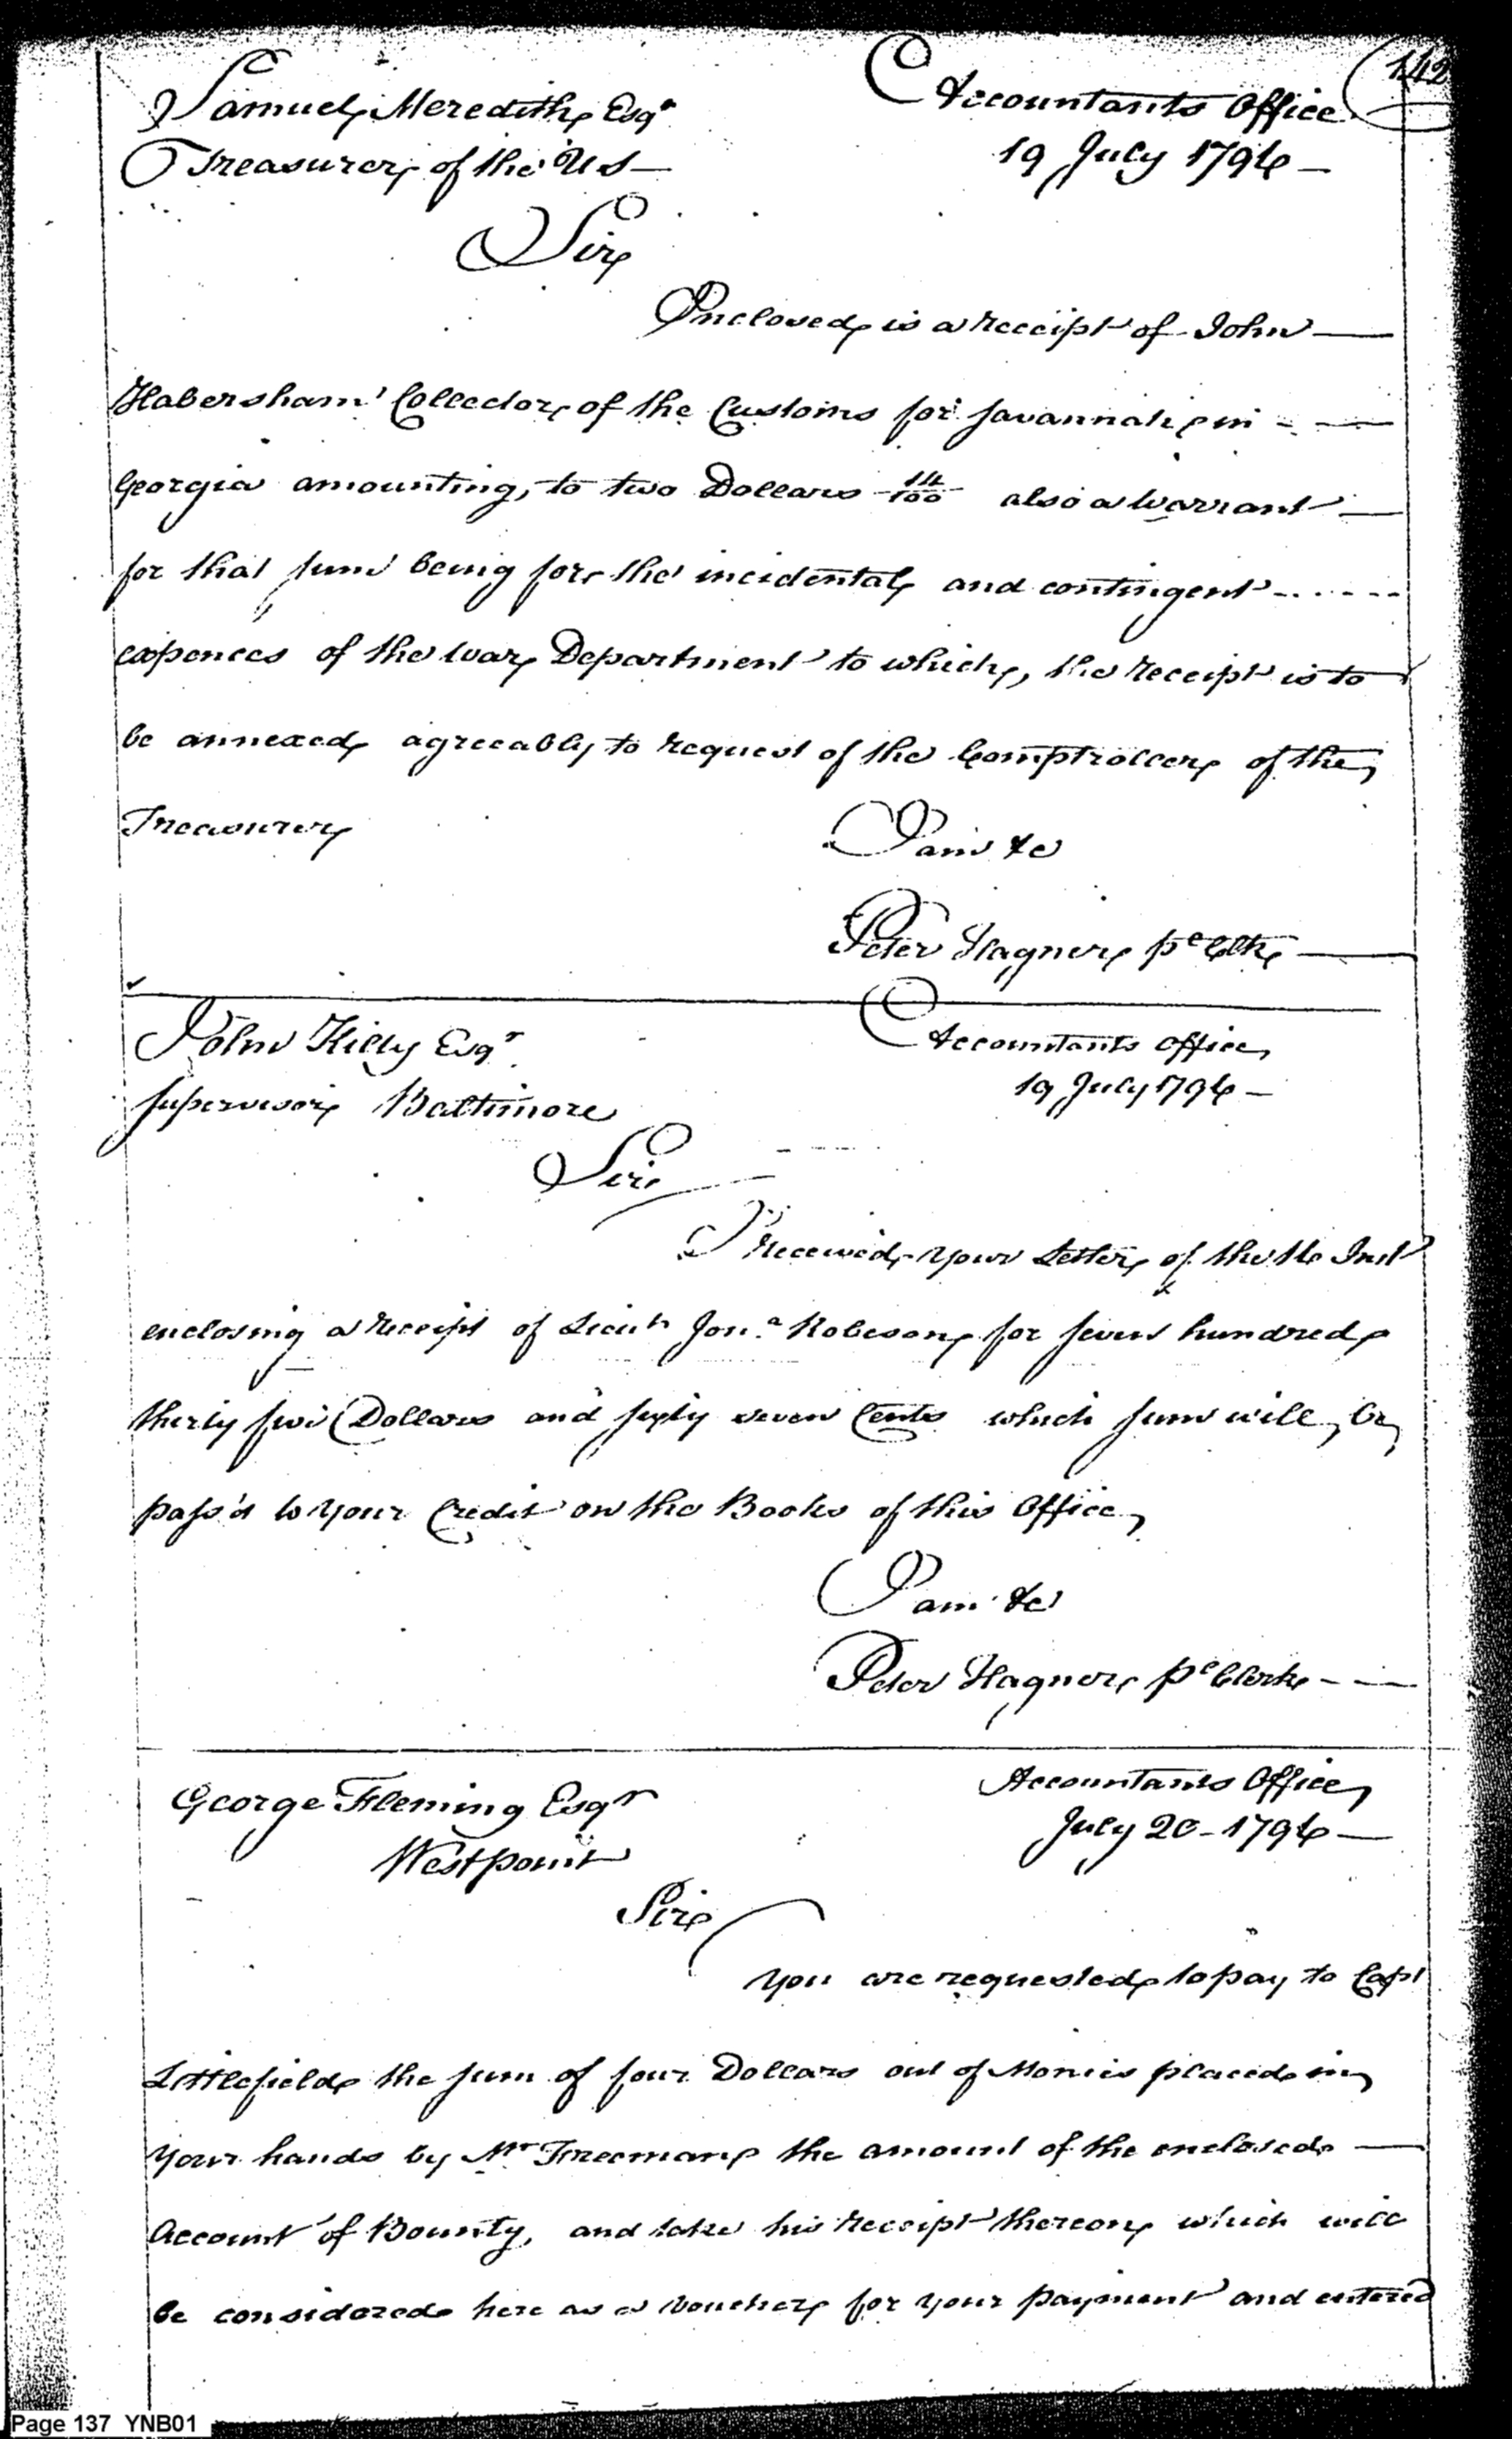 142
Samuel Meredith Esqr Accountants Office
Treasurer of the US — 19 July 1794 —
Sir
Enclosed is a receipt of John —
Habersham Collector of the Customs for Savannah in - —
Georgia amounting, to two Dollars 14/100 also a Warrant —
for that sum being for the incidental and contingent - - - - - -
expences of the War Department to which, the receipt is to
be annexed agreeably to request of the Comptroller of the
Treasury
I am &c
Peter Hagner pe Clk —
John Kilty Esqr Accountants Office
Supervisor Baltimore 19 July 1794 —
Sir
I received your Letter of the Inst
enclosing a receipt of Lieut Jona Robeson for seven hundred
thirty five Dollars and sixty seven Cents which sum will, be
pass'd to your Credit on the Books of this Office
I am &c
Peter Hagner pe Clerk - - —
George Fleming Esqr Accountants Office
Westpoint July 20 - 1794 —
Sir
You are requested to pay to Capt
Littlefield the sum of four Dollars out of Monies placed in
your hands by Mr Freeman the amount of the enclosed —
Account of Bounty, and take his receipt thereon which will
be considered here as a voucher for your payment and entered
Page 137 YNB01